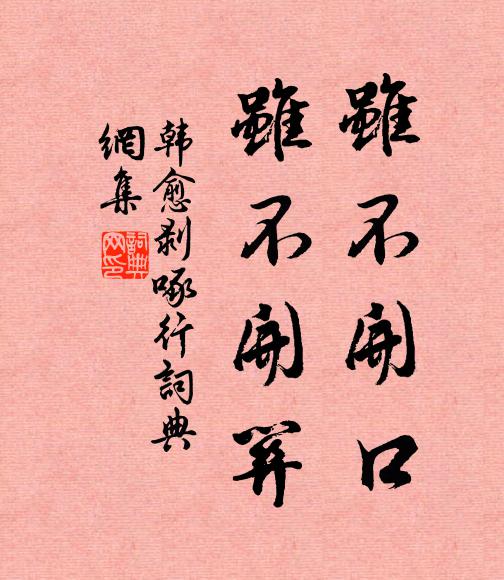 雖不開口
雖不開關
韩愈剥啄行詞典
網集
詞典網印